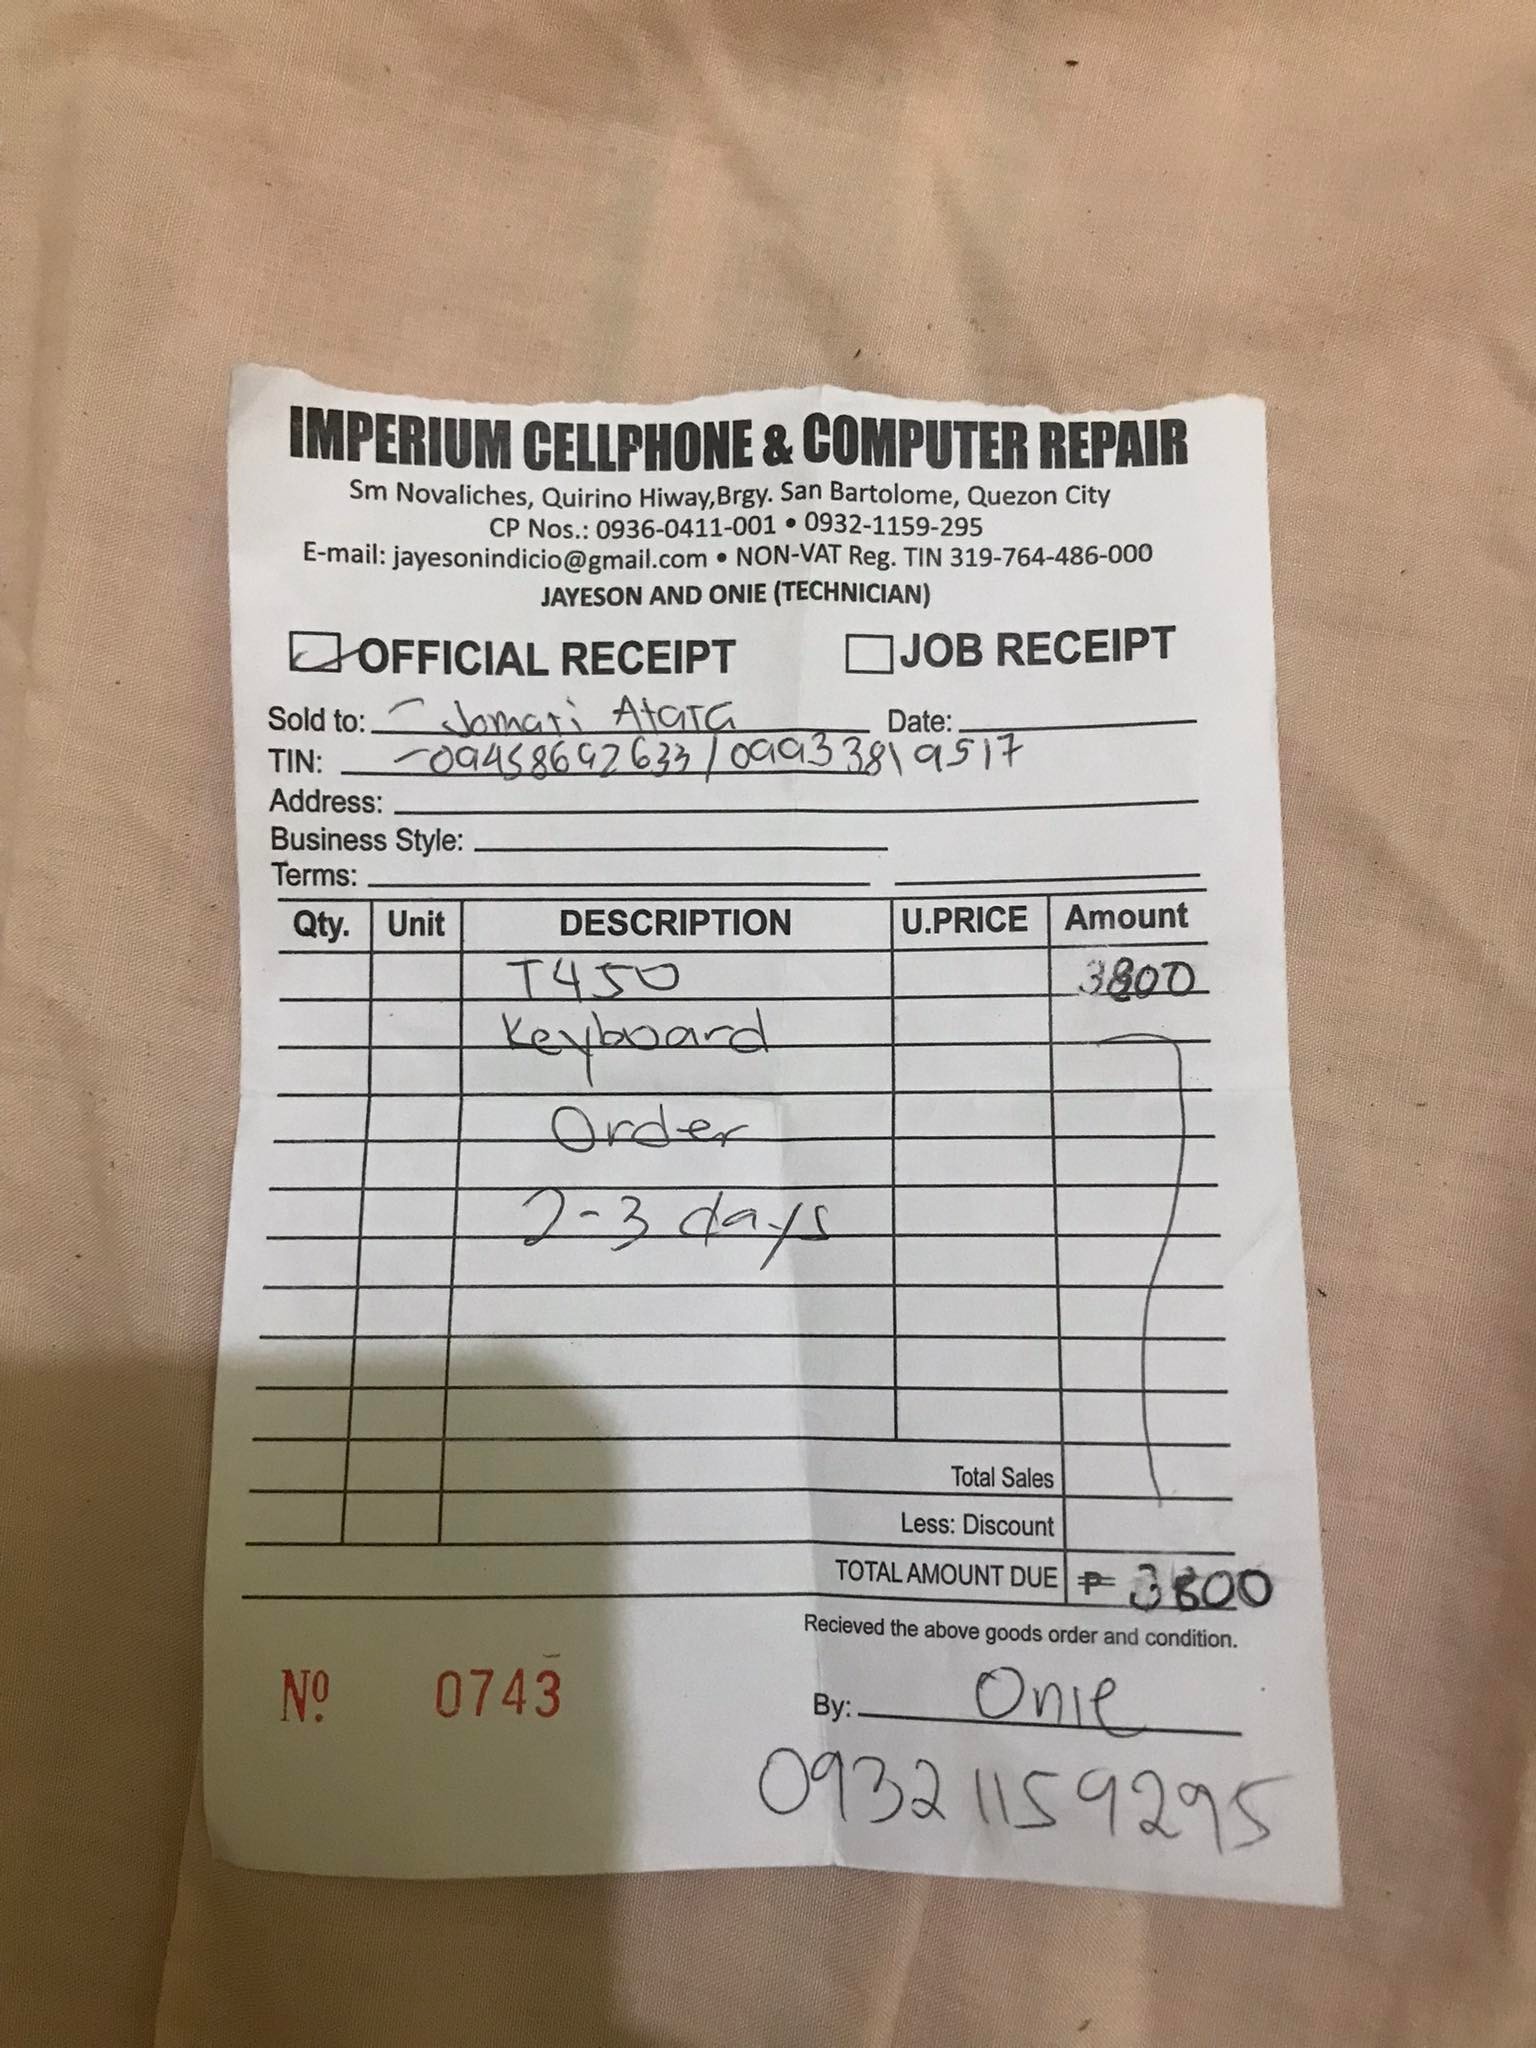 IMPERIUM CELLPHONE & COMPUTER REPAIR
Sm Novaliches, Quirino Hiway,Brgy. San Bartolome, Quezon City
CP Nos.: 0936-0411-001 • 0932-1159-295
E-mail: jayesonindicio@gmail.com • NON-VAT Reg. TIN 319-764-486-000
JAYESON AND ONIE (TECHNICIAN)
OFFICIAL RECEIPT JOB RECEIPT
Sold to: Jomari Atara Date:
TIN: 09458692633/09933819517
Address:
Business Style:
Terms:
Qty. Unit DESCRIPTION U.PRICE Amount
T450 3800
Keyboard
Order
2-3 days
Total Sales
Less: Discount
TOTAL AMOUNT DUE ₱ 3800
Recieved the above goods order and condition.
Nº 0743
By: Onie
09321159295